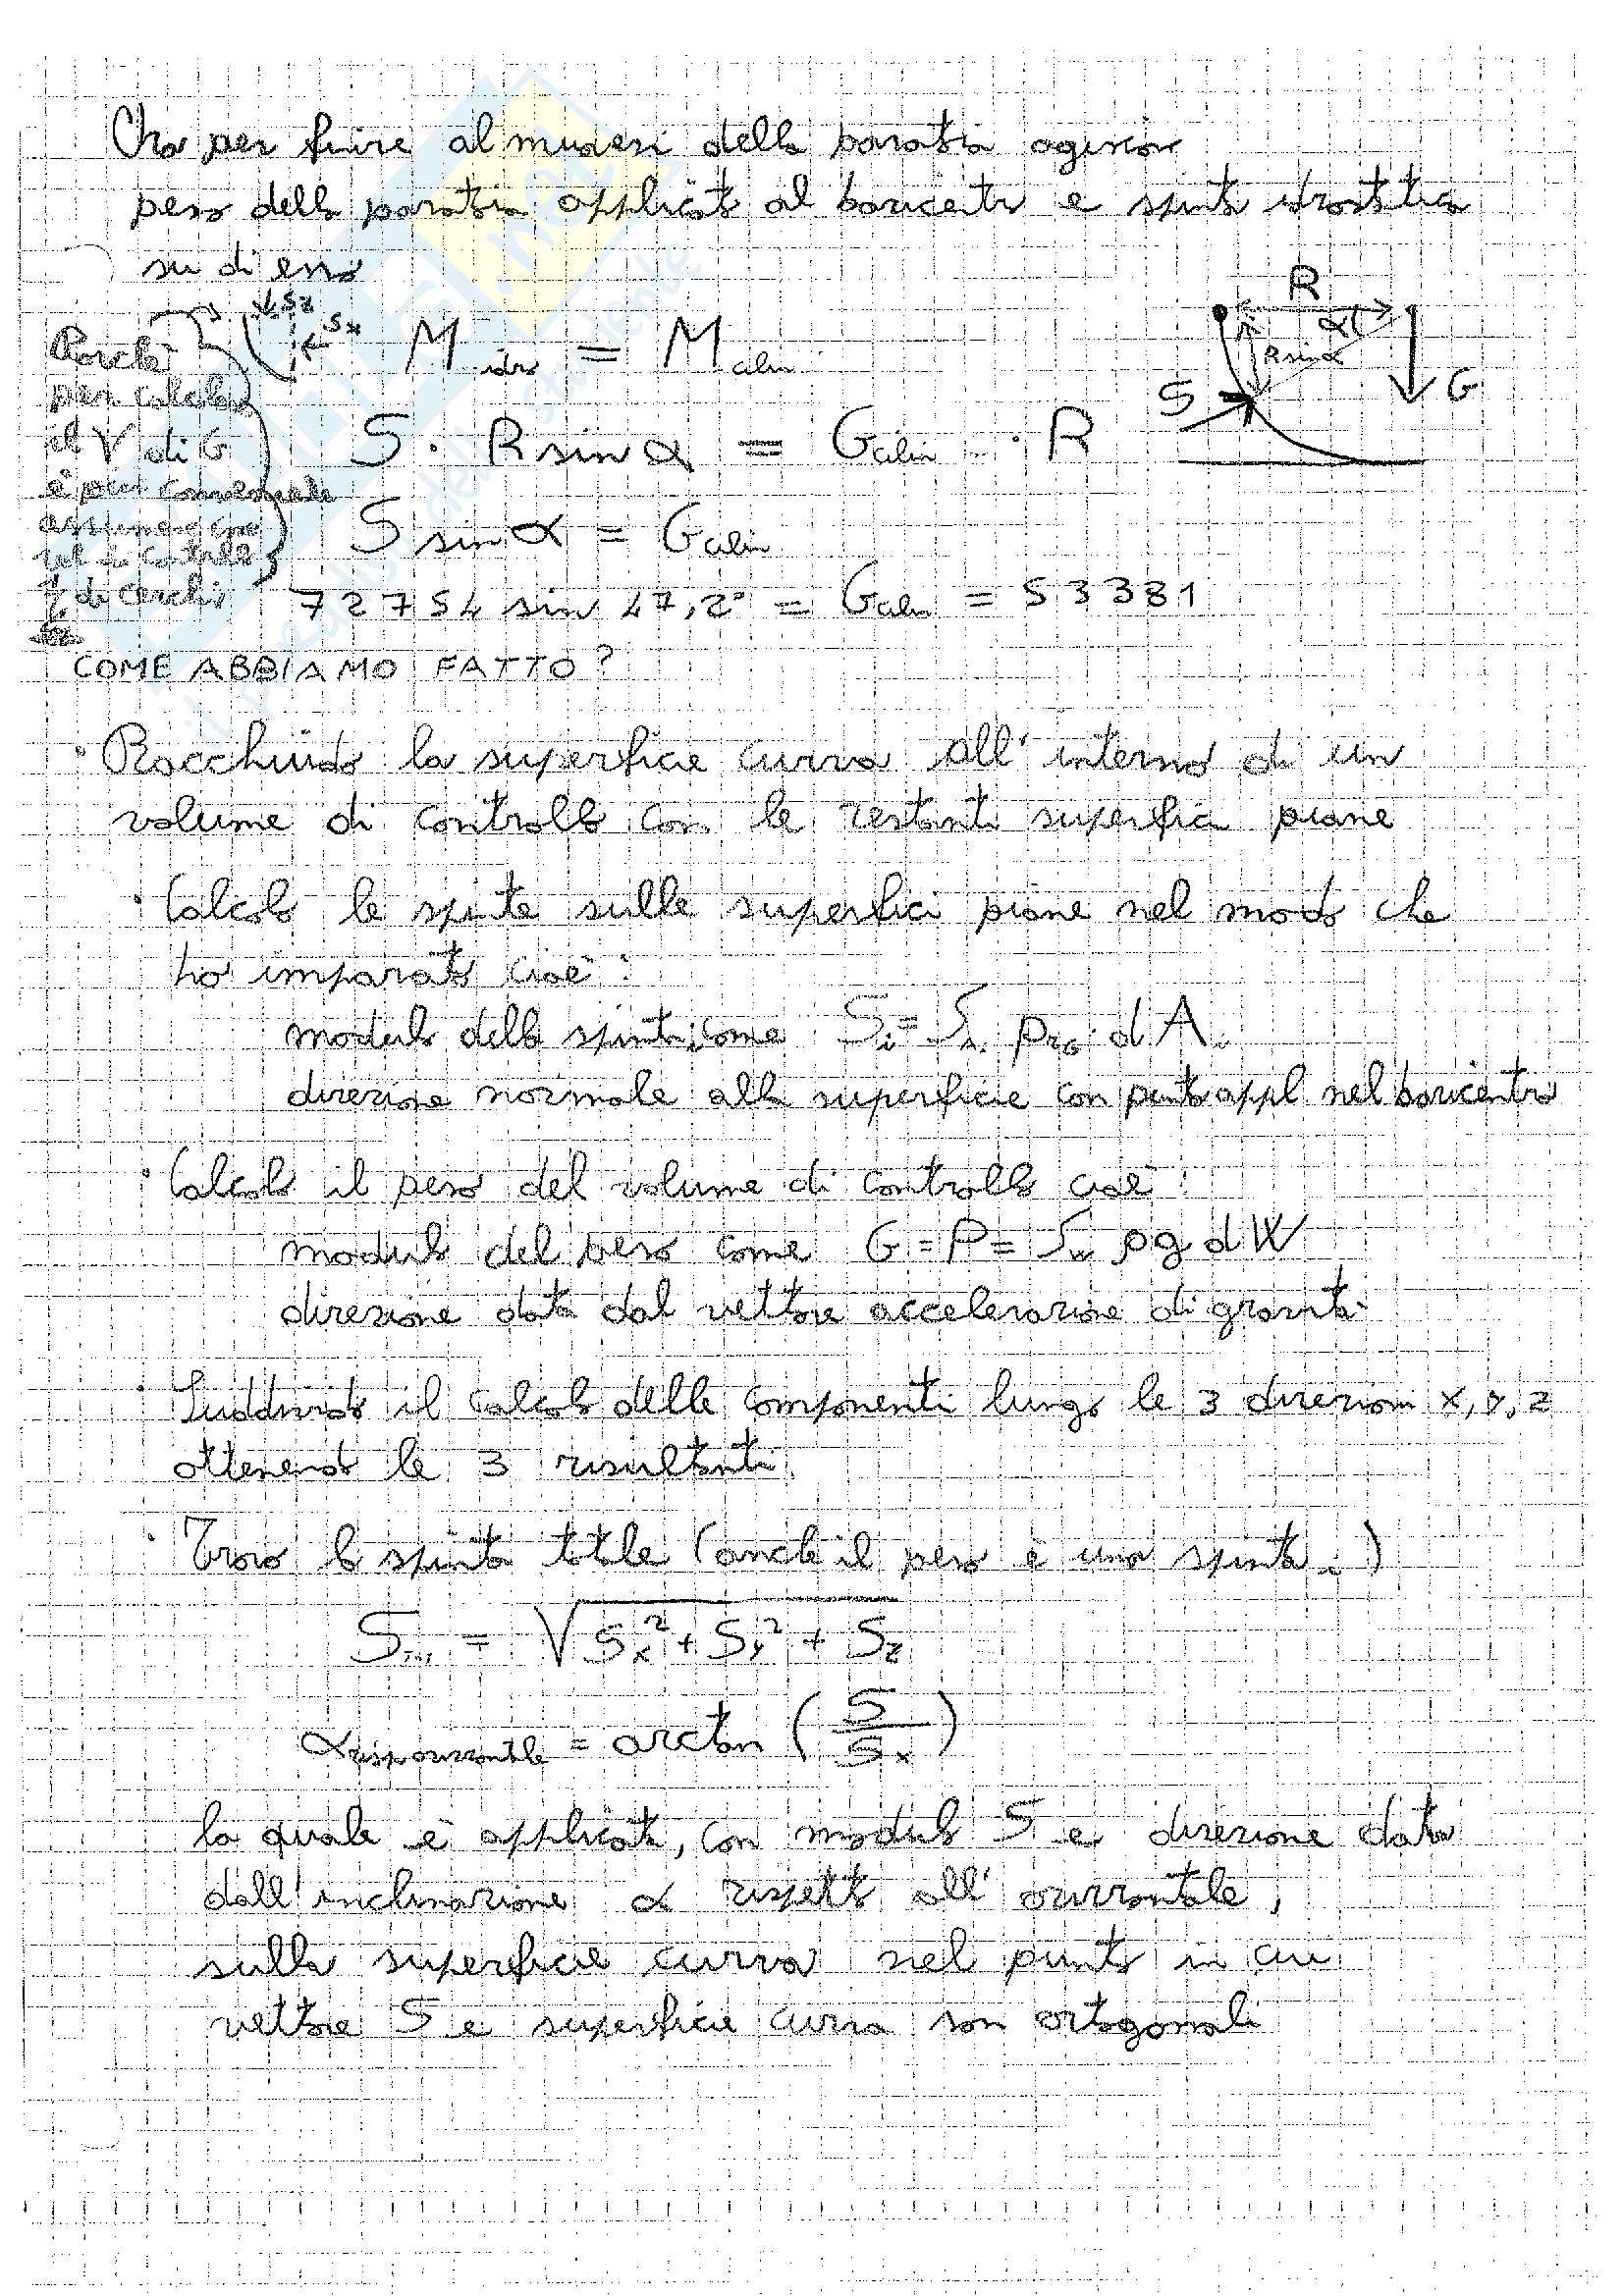 Ora per finire al muoversi della paratia agiscono
peso della paratia applicato al baricentro e spinta idrostatica
su di essa
Sz
Sx
R
α
R sin α
S
G
Perché
per calcolo
el V di G
è più conveniente
assumere come
vol di controllo
1/4 di cerchio
M idro = M cilin
S · R sin α = G cilin · R
S sin α = G cilin
72754 sin 47,2° = G cilin = 53381
COME ABBIAMO FATTO?
· Racchiudo la superficie curva all'interno di un
volume di controllo con le restanti superfici piane
· Calcolo le spinte sulle superfici piane nel modo che
ho imparato cioè:
modulo della spinta i come Si = ∫A prG dAi
direzione normale alla superficie con punto appl nel baricentro
· Calcolo il peso del volume di controllo cioè:
modulo del peso come G = P = ∫w ρg dW
direzione data dal vettore accelerazione di gravità
· Suddivido il calcolo delle componenti lungo le 3 direzioni x, y, z
ottenendo le 3 risultanti
· Trovo la spinta totale (anche il peso è una spinta i)
S tot = √Sx² + Sy² + Sz
α risp orizzontale = arctan (S/Sx)
la quale è applicata, con modulo S e direzione data
dall'inclinazione α rispetto all'orizzontale,
sulla superficie curva nel punto in cui
vettore S e superficie curva son ortogonali